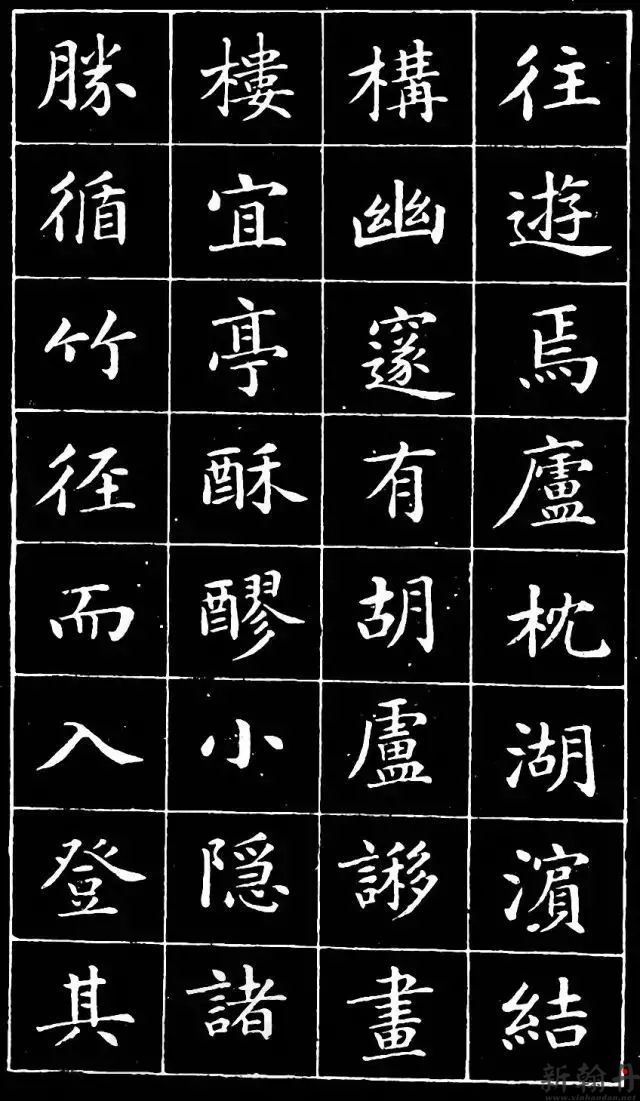 往遊焉廬枕湖濵結
構幽邃有胡盧謻畫
樓宜亭酥醪小隱諸
勝循竹徑而入登其
新翰丹
www.xinhandan.net